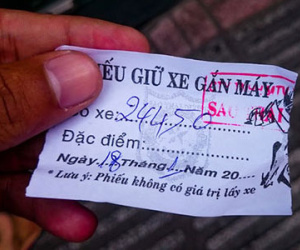 IẾU GIỮ XE GẮN MÁY
ố xe: 24450
Đặc điểm:
Ngày 18 Tháng 1 Năm 20
* Lưu ý: Phiếu không có giá trị lấy xe